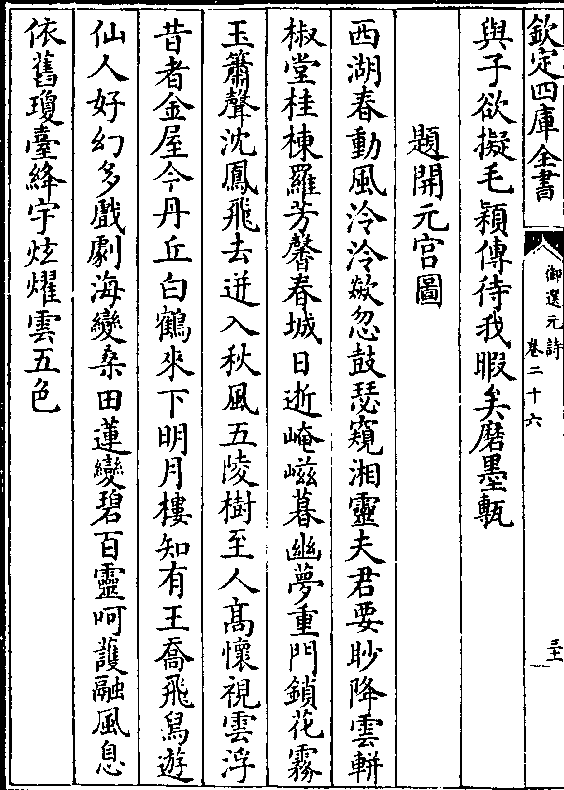 欽定四庫全書
御選元詩
卷二十六
三十一
與子欲擬毛穎傳待我暇矣磨墨甎
題開元宫圖
西湖春動風泠泠欻忽鼓瑟窺湘靈夫君要眇降雲軿
椒堂桂棟羅芳馨春城日逝崦嵫暮幽夢重門鎖花霧
玉簫聲沈鳳飛去迸入秋風五陵樹至人髙懷視雲浮
昔者金屋今丹丘白鶴來下明月樓知有王喬飛舄遊
仙人好幻多戲劇海變桑田蓮變碧百靈呵䕶融風息
依舊瓊臺絳宇炫燿雲五色